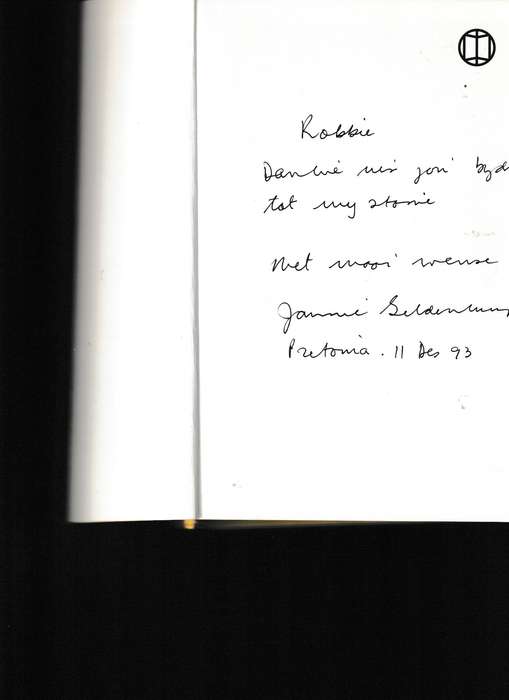 Robbie
Dankie vir jou byd
tot my storie
Met mooi wense
Jannie Geldenhuys
Pretoria. 11 Des 93